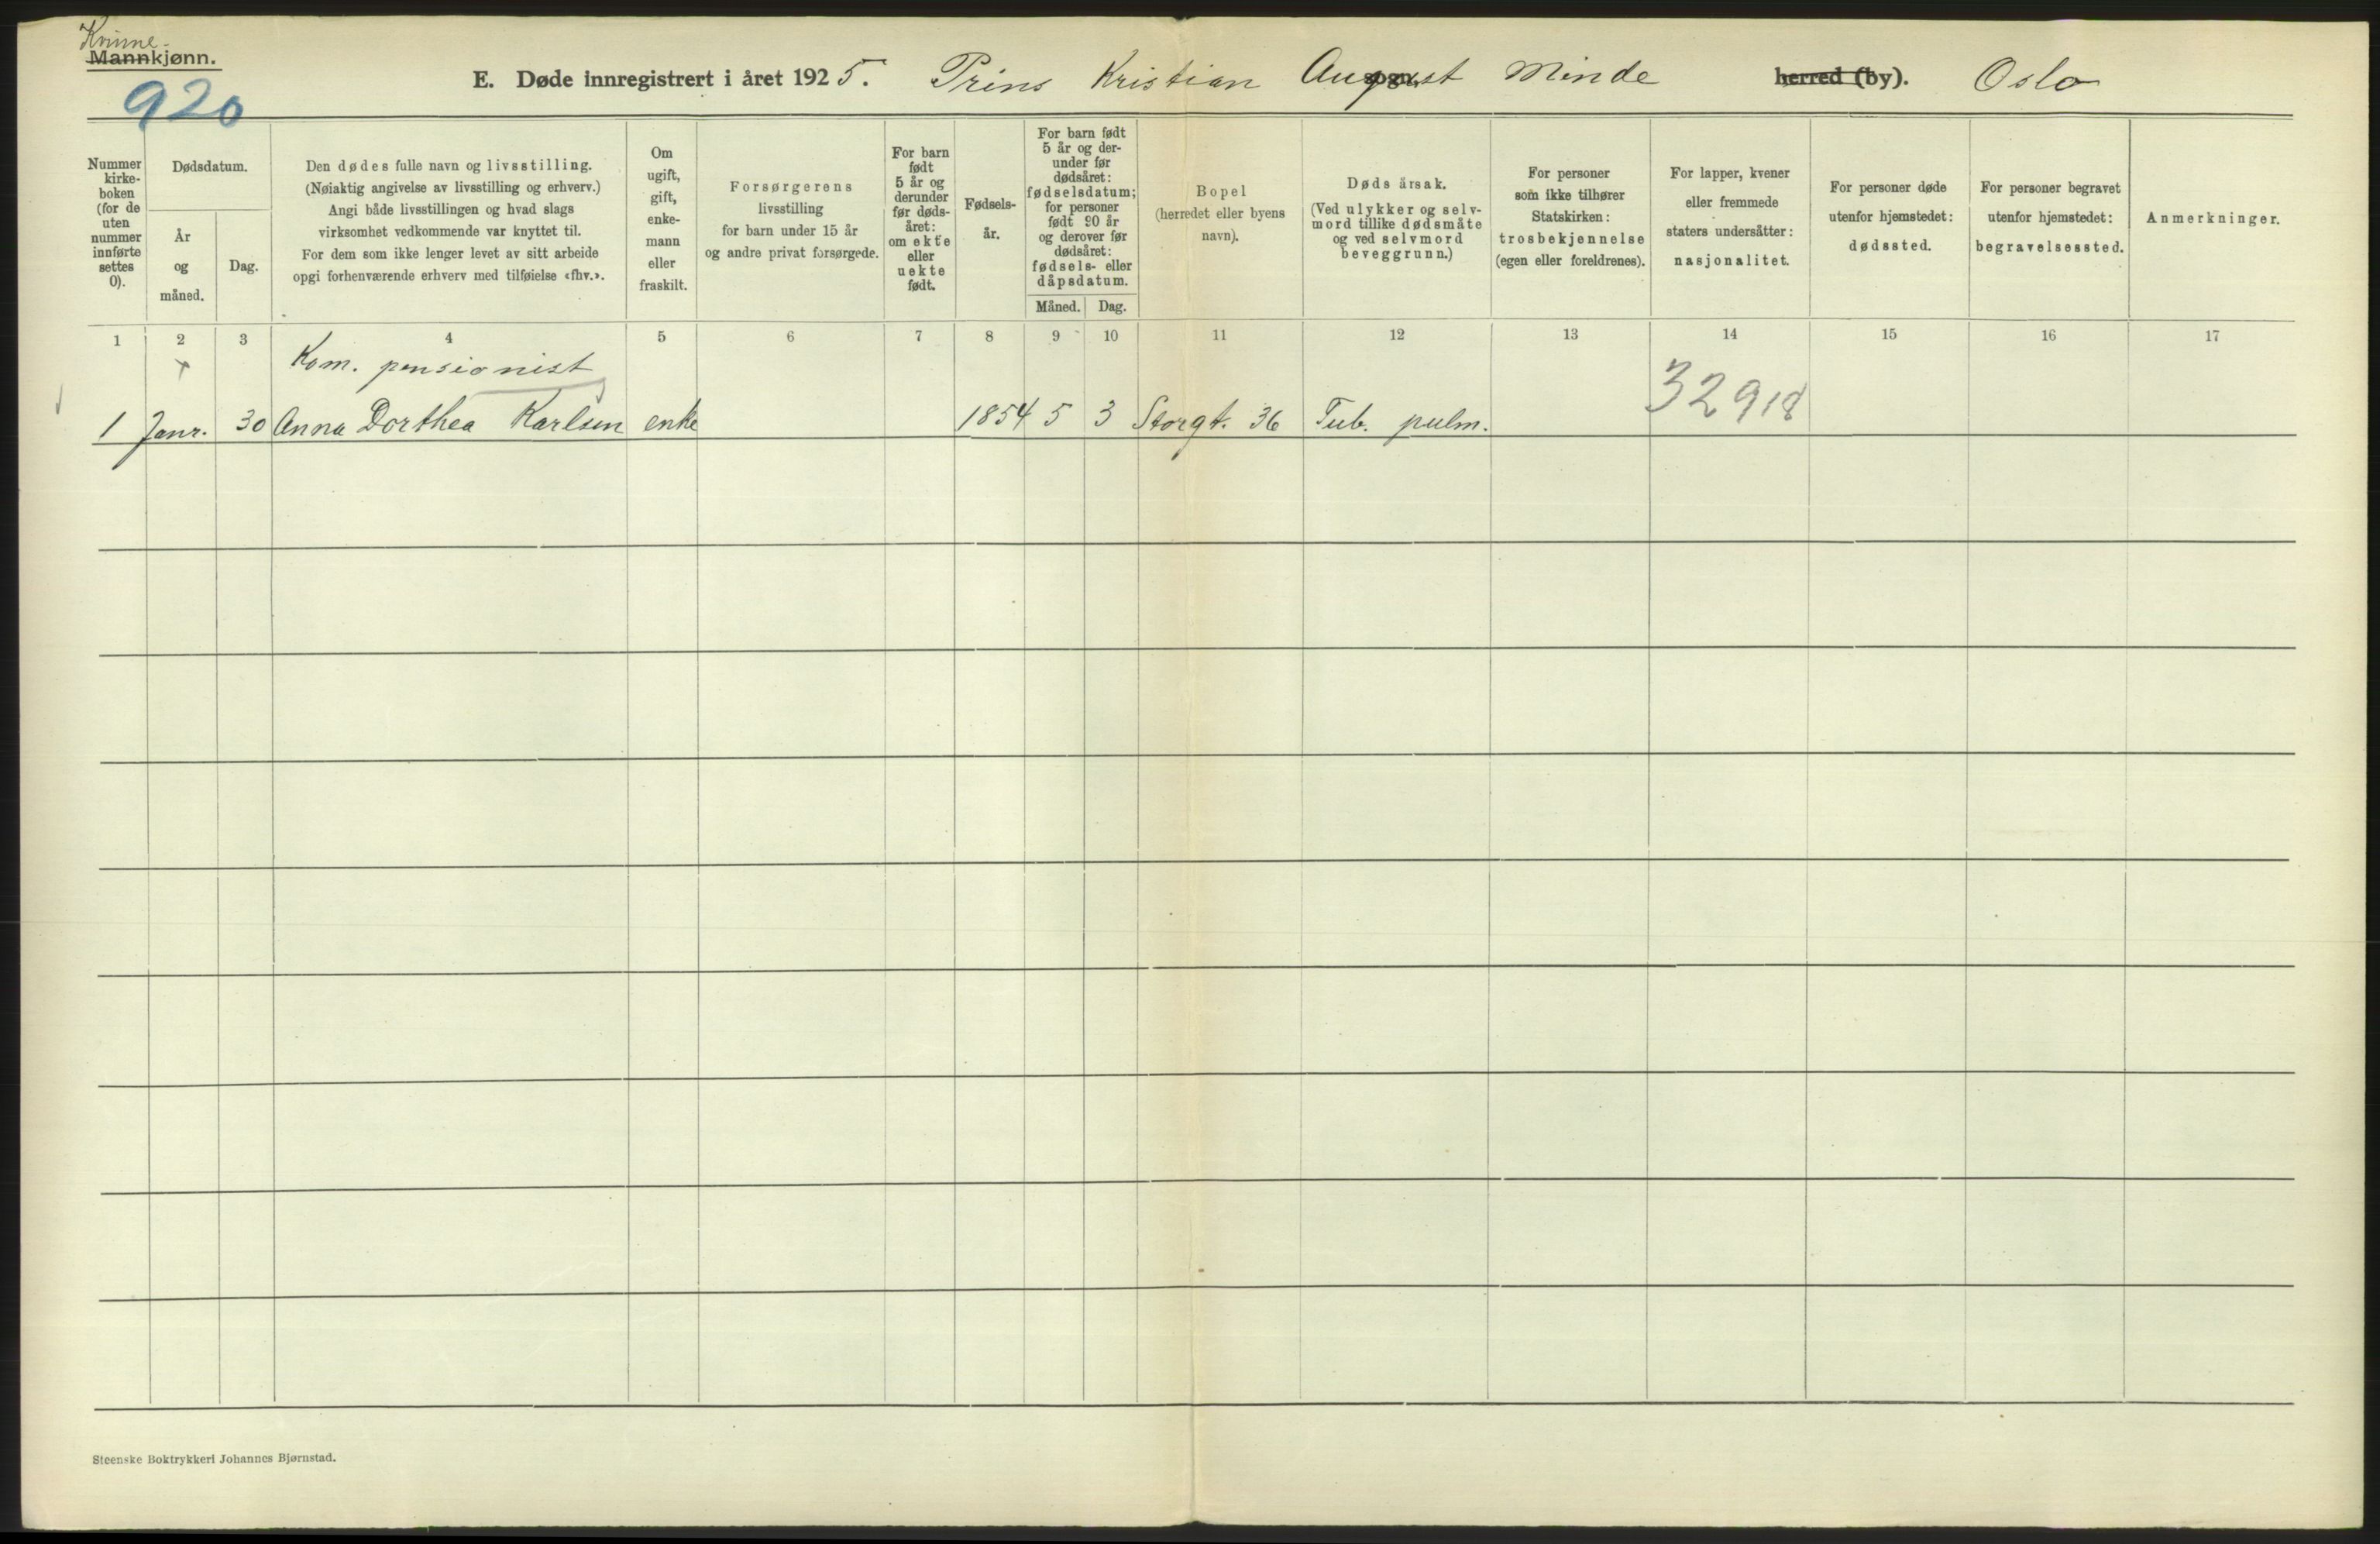 Kvinne-
Mannkjønn.
920
E. Døde innregistrert i året 1925. Prins Kristian August Minde herred (by). Oslo
Nummer kirke- boken (for de uten nummer innførte settes 0).
Dødsdatum.
År og måned.
Dag.
Den dødes fulle navn og livsstilling.
(Nøiaktig angivelse av livsstilling og erhverv.)
Angi både livsstillingen og hvad slags
virksomhet vedkommende var knyttet til.
For dem som ikke lenger levet av sitt arbeide
opgi forhenværende erhverv med tilføielse «fhv.».
Om ugift, gift, enke- mann eller fraskilt.
Forsørgerens
livsstilling
for barn under 15 år
og andre privat forsørgede.
For barn født 5 år og derunder før døds- året: om ekte eller uekte født.
Fødsels- år.
For barn født
5 år og der-
under før
dødsåret:
fødselsdatum;
for personer
født 90 år
og derover før
dødsåret:
fødsels- eller
dåpsdatum.
Måned. Dag.
Bopel
(herredet eller byens
navn).
Døds årsak.
(Ved ulykker og selv-
mord tillike dødsmåte
og ved selvmord
beveggrunn.)
For personer
som ikke tilhører
Statskirken:
trosbekjennelse
(egen eller foreldrenes).
For lapper, kvener
eller fremmede
staters undersåtter:
nasjonalitet.
For personer døde
utenfor hjemstedet:
dødssted.
For personer begravet
utenfor hjemstedet:
begravelsessted.
Anmerkninger.
1 2 3 4 5 6 7 8 9 10 11 12 13 14 15 16 17
Kom. pensionist
32918
1 Janr. 30 Anna Dorthea Karlsen enke 1854 5 3 Storgt. 36 Tub. pulm.
Steenske Boktrykkeri Johannes Bjørnstad.